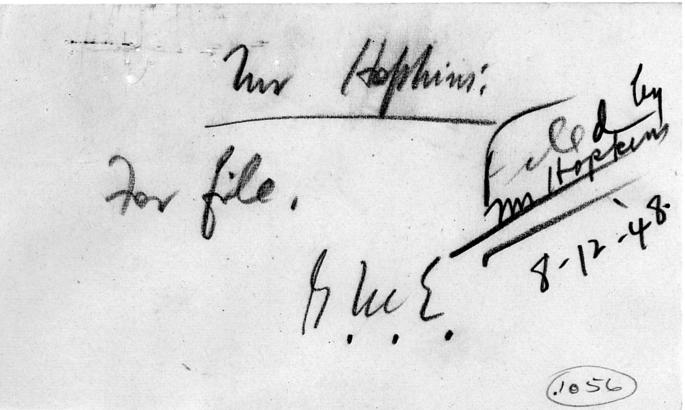 Mr Hopkins:
For file.
G.M.E.
Filed by
Mr Hopkins
8-12-48.
1056